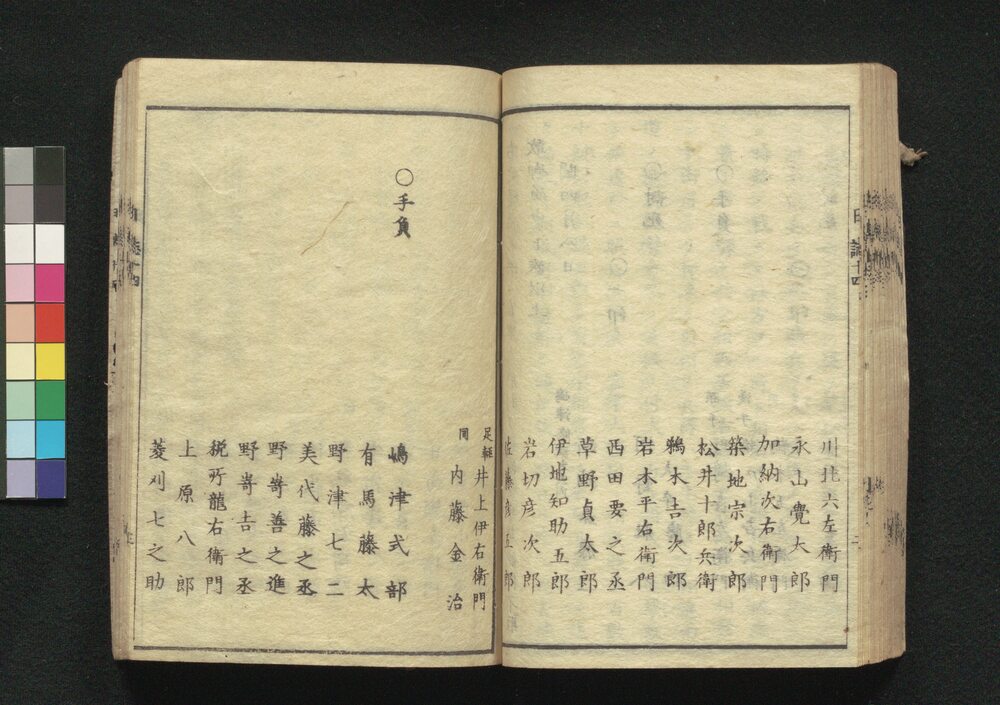 川北六左衛門
永山覺大郎
加納次右衛門
築地宗次郎
松井十郎兵衛
鵜木吉次郎
岩木平右衛門
西田要之丞
草野貞太郎
伊地知助五郎
岩切彦次郎
佐藤彦五郎
足軽 井上伊右衛門
同 内藤金治
〇手負
嶋津式部
有馬藤太
野津七二
美代藤之丞
野嵜善之進
野嵜吉之丞
税所龍右衛門
上原八郎
菱刈七之助